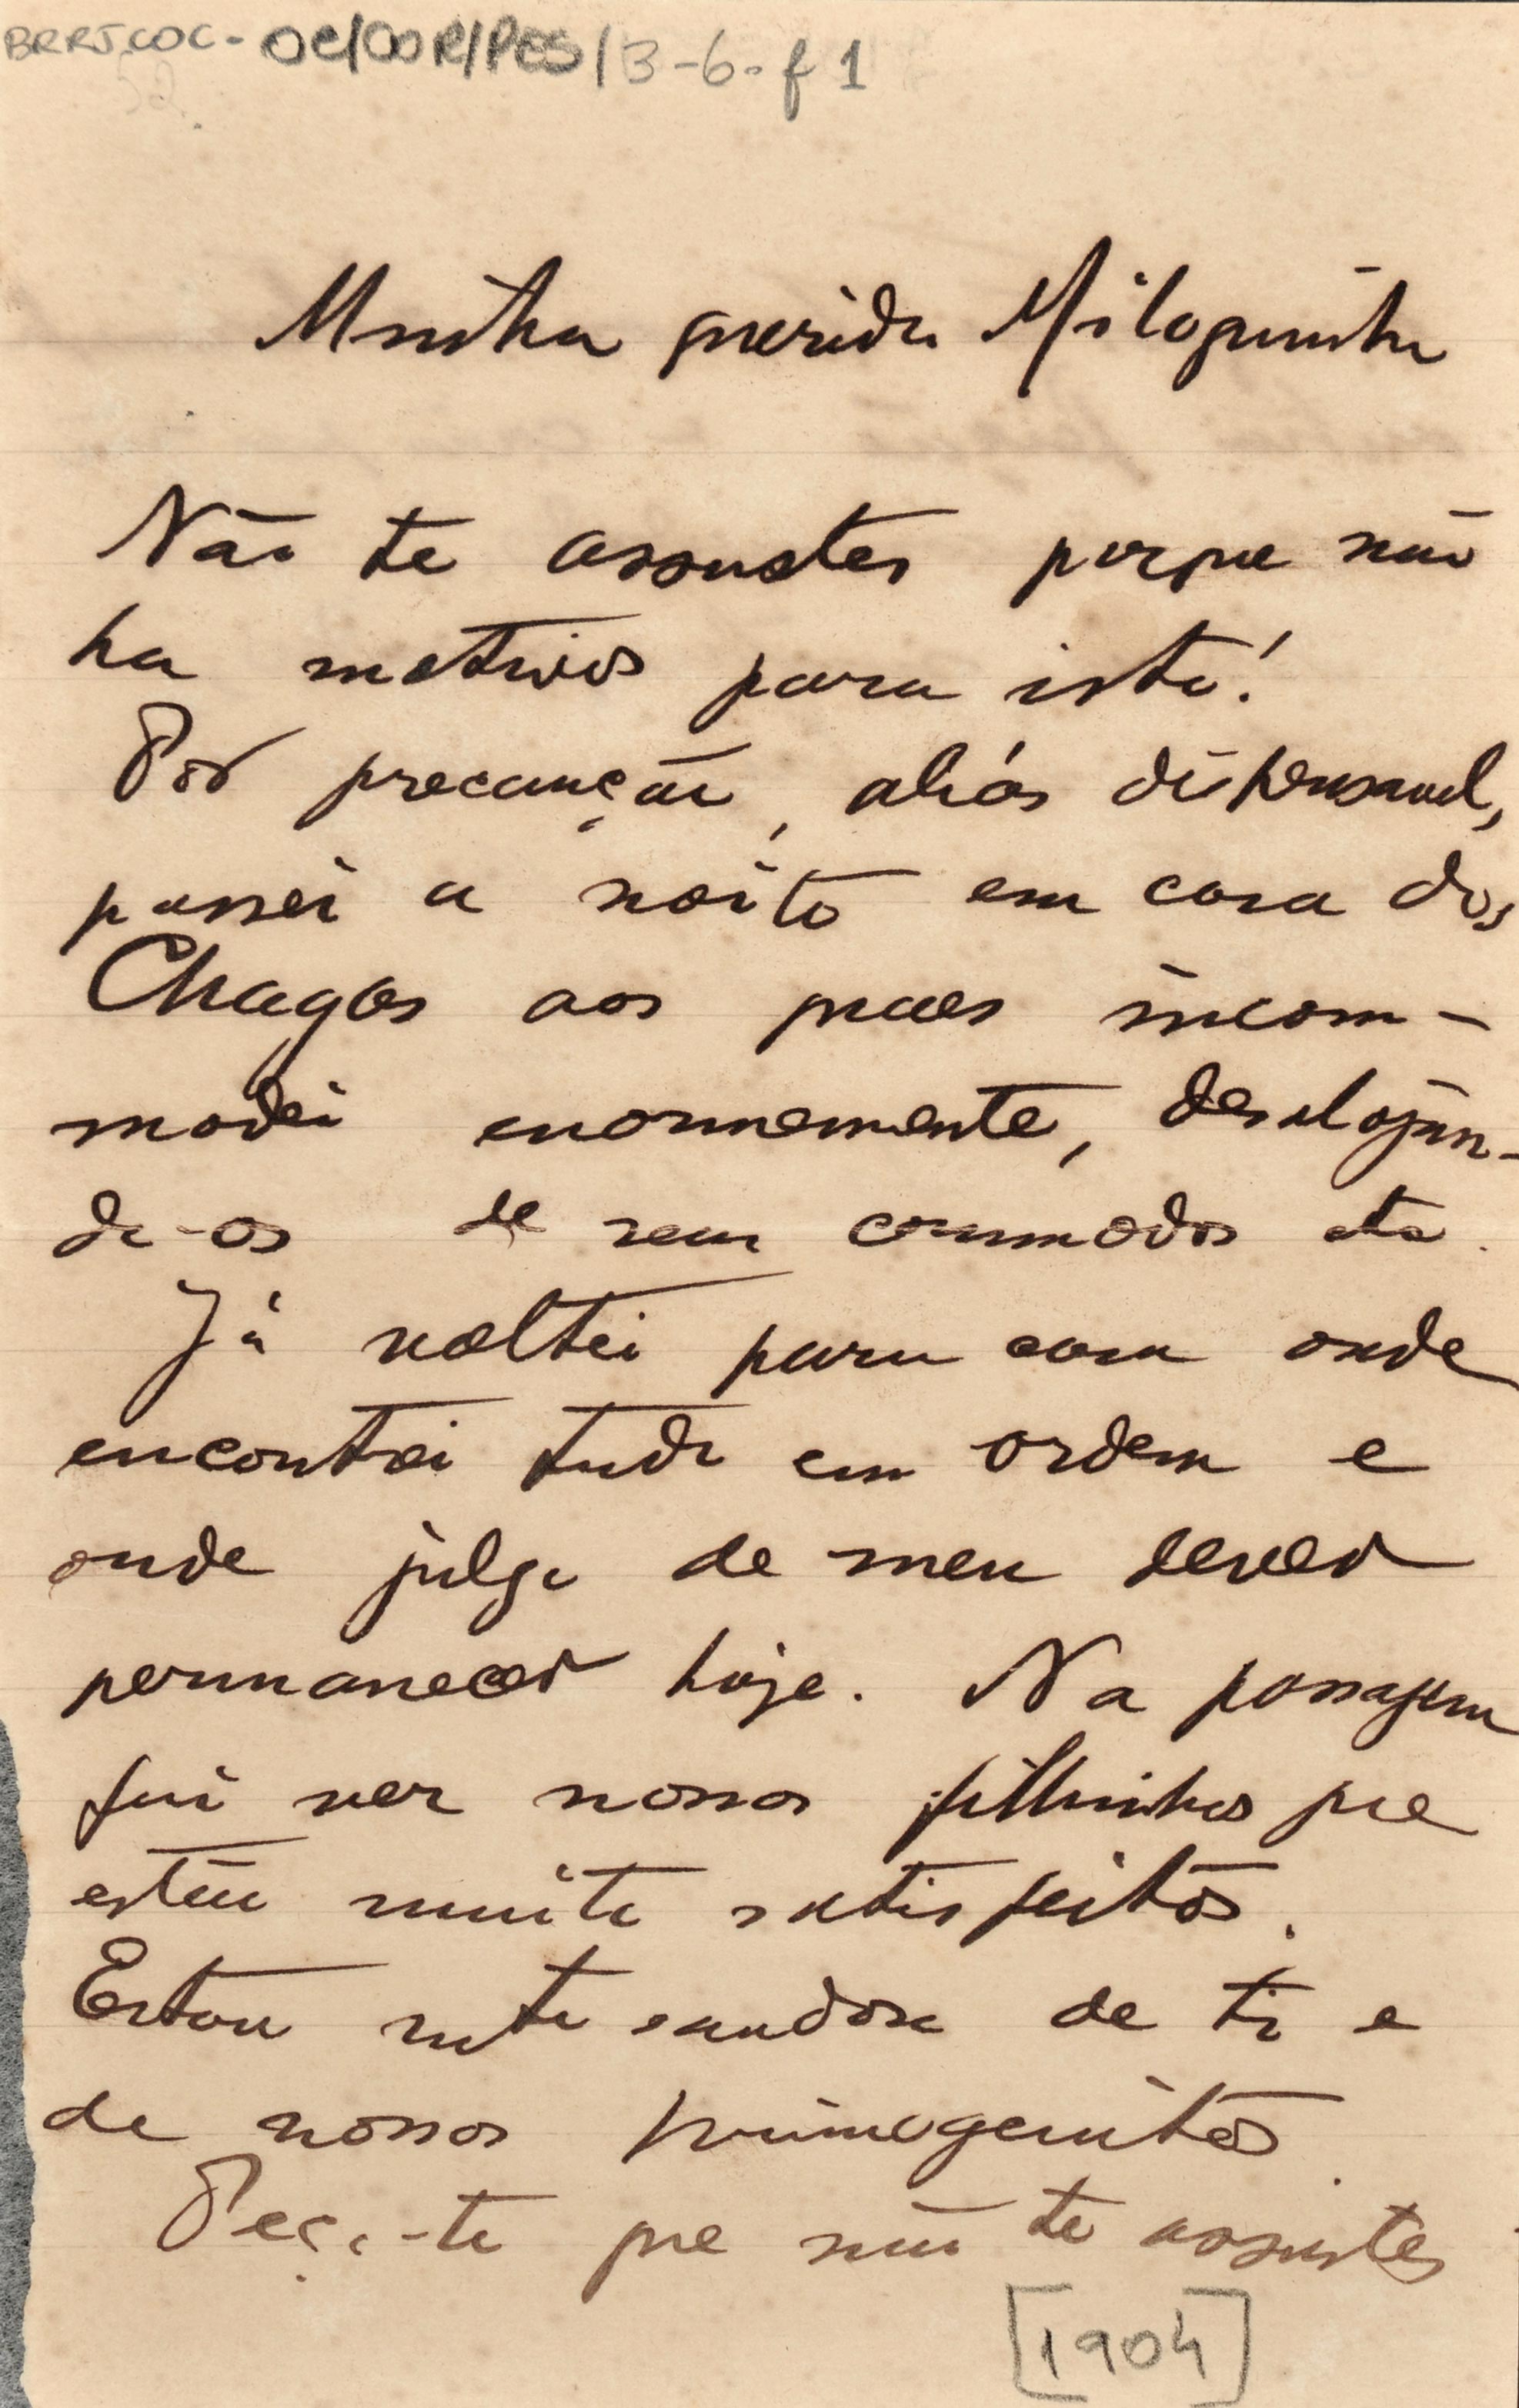 BRRJ.COC - OC/COR/PES/3-6. f 1
Minha querida Miloquinha
Não te assustes porque não
ha motivos para isto!
Por precaução, aliás dispensavel,
passei a noite em casa dos
Chagas aos quaes incom-
modei enormemente, desalojan-
do-os de seus commodos etc.
Já voltei para casa onde
encontrei tudo em ordem e
onde julgo de meu dever
permanecer hoje. Na passagem
fui ver nossos filhinhos que
estão muito satisfeitos.
Estou mto saudoso de ti e
de nossos primogenitos.
Peço-te que não te assustes
[1904]